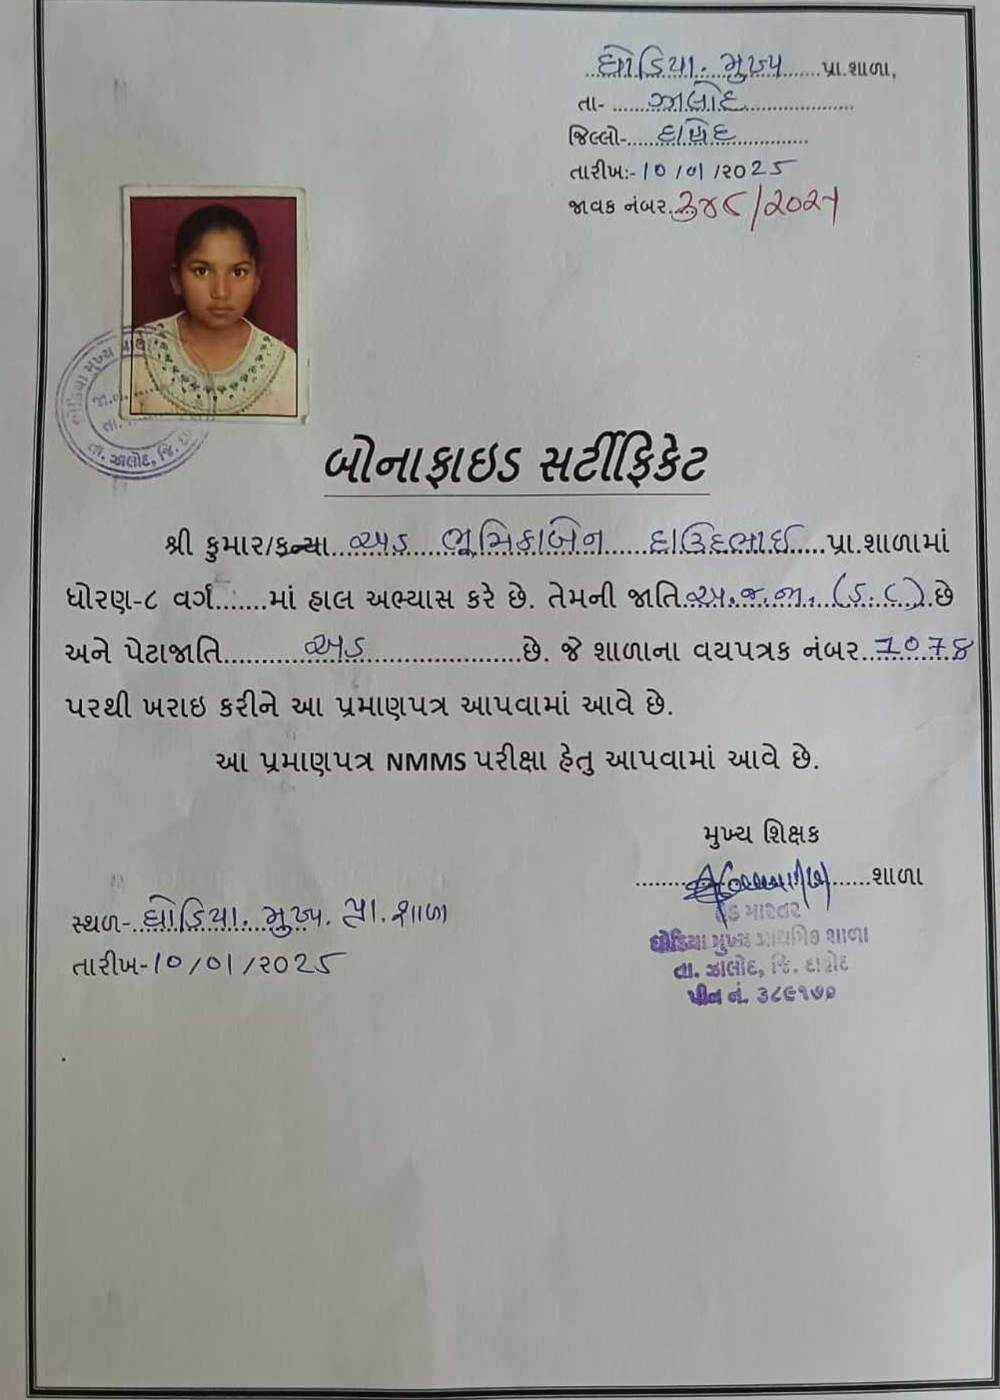 ઘોડિયા. મુખ્ય પ્રા.શાળા,
તા- ઝાલોદ
જિલ્લો- દાહોદ
તારીખ:- 10/01/2025
જાવક નંબર. ૩૪૮/૨૦૨૫
તા. ઝાલોદ, જિ.
બોનાફાઇડ સર્ટીફિકેટ
શ્રી કુમાર/કન્યા અડ ભૂમિકાબેન દાઉદભાઈ પ્રા.શાળામાં
ધોરણ-૮ વર્ગ.......માં હાલ અભ્યાસ કરે છે. તેમની જાતિ અ.જ.જા. (S.C) છે
અને પેટાજાતિ અડ છે. જે શાળાના વયપત્રક નંબર 1078
પરથી ખરાઇ કરીને આ પ્રમાણપત્ર આપવામાં આવે છે.
આ પ્રમાણપત્ર NMMS પરીક્ષા હેતુ આપવામાં આવે છે.
મુખ્ય શિક્ષક
શાળા
હેડ માસ્તર
ઘોડિયા મુખ્ય પ્રાથમિક શાળા
તા. ઝાલોદ, જિ. દાહોદ
પીન નં. ૩૮૯૧૭૦
સ્થળ- ઘોડિયા. મુખ્ય. પ્રા. શાળા
તારીખ-10/01/2025